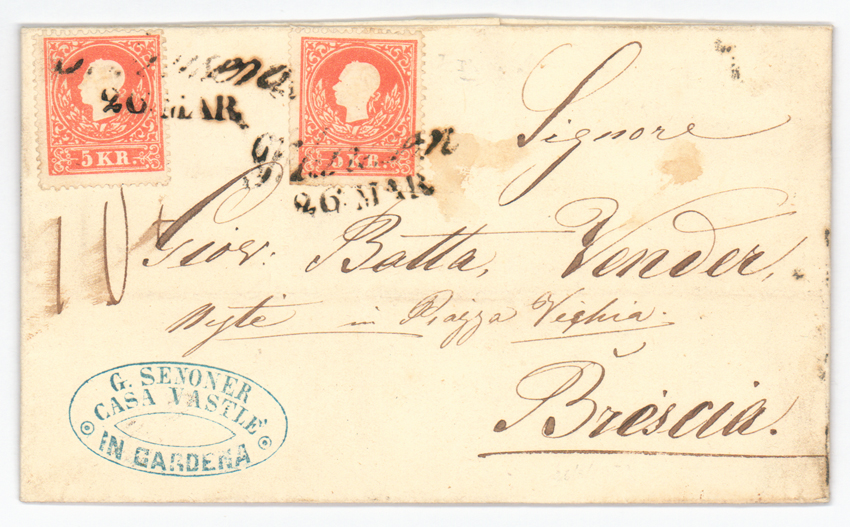 26 MAR.
5 KR.
26 MAR
5 KR.
Signore
10
Giov: Batta, Vender,
in Piazza Vechia.
Brescia.
G. SENONER
CASA VASTLE
IN GARDENA